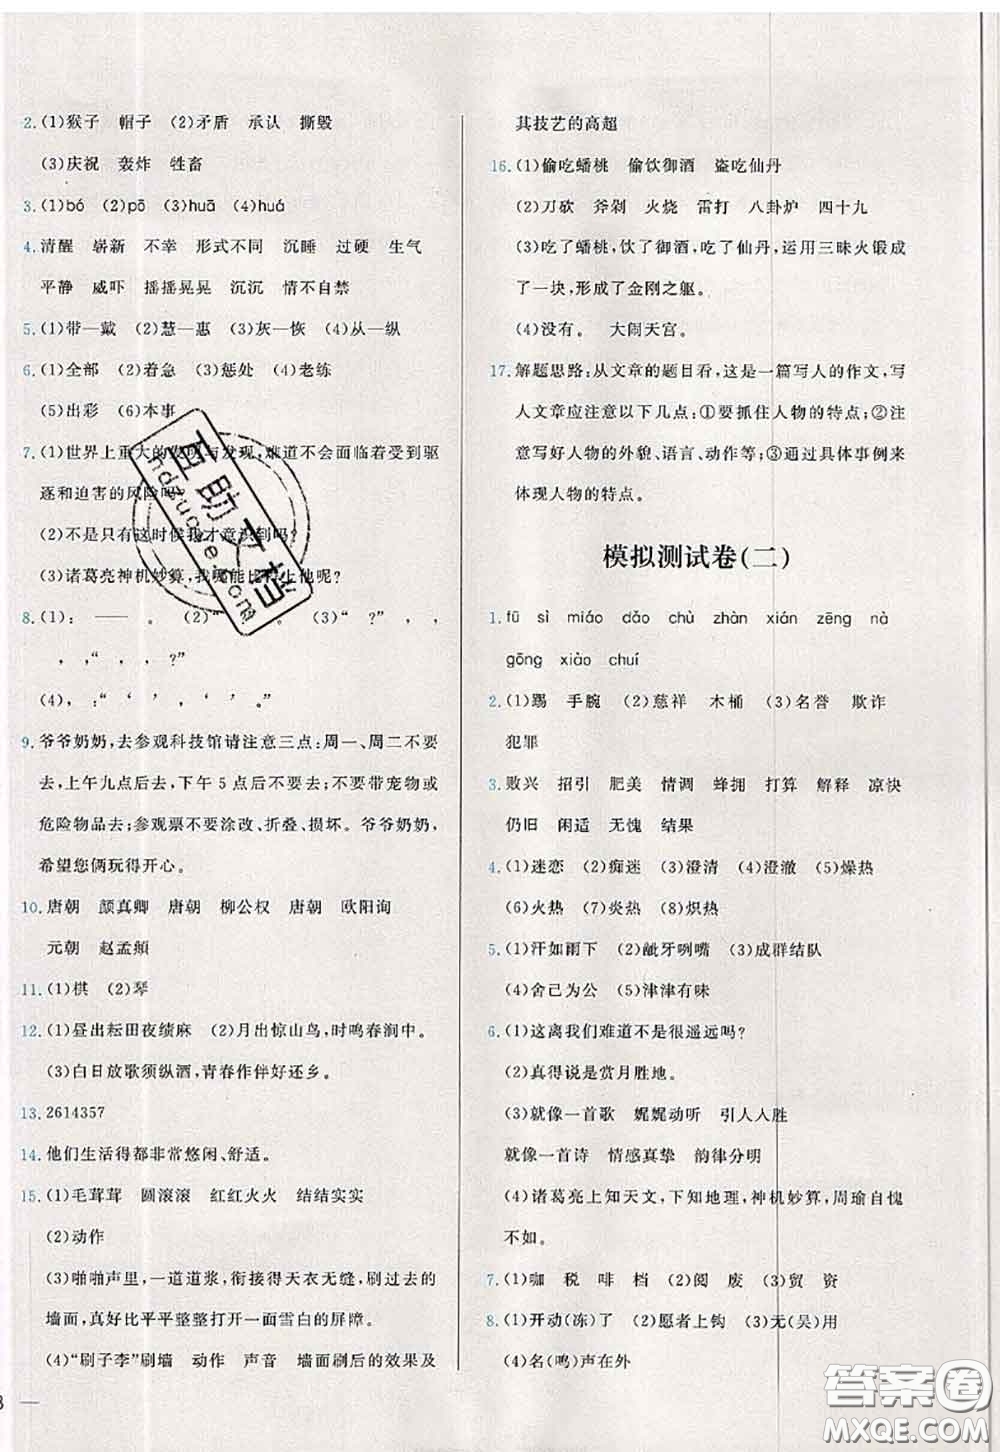 2.(1)猴子 帽子 (2)矛盾 承认 撕毁
(3)庆祝 轰炸 牲畜
3.(1)bó (2)pō (3)huā (4)huá
4.清醒 崭新 不幸 形式不同 沉睡 过硬 生气
平静 威吓 摇摇晃晃 沉沉 情不自禁
5.(1)带—戴 (2)慧—惠 (3)灰—恢 (4)从—纵
6.(1)全部 (2)着急 (3)惩处 (4)老练
(5)出彩 (6)本事
7.(1)世界上重大的发明与发现,难道不会面临着受到驱
逐和迫害的风险吗?
(2)不是只有这时候我才意识到吗?
(3)诸葛亮神机妙算,我哪能比得上他呢?
8.(1): —— 。 (2)“ (3)“ ?” , ,
, ,“ , ?”
(4),:“ ‘ ’ , ‘ ’ 。”
9.爷爷奶奶,去参观科技馆请注意三点:周一、周二不要
去,上午九点后去,下午5点后不要去;不要带宠物或
危险物品去;参观票不要涂改、折叠、损坏。爷爷奶奶,
希望您俩玩得开心。
10.唐朝 颜真卿 唐朝 柳公权 唐朝 欧阳询
元朝 赵孟頫
11.(1)棋 (2)琴
12.(1)昼出耘田夜绩麻 (2)月出惊山鸟,时鸣春涧中。
(3)白日放歌须纵酒,青春作伴好还乡。
13.2614357
14.他们生活得都非常悠闲、舒适。
15.(1)毛茸茸 圆滚滚 红红火火 结结实实
(2)动作
(3)啪啪声里,一道道浆,衔接得天衣无缝,刷过去的
墙面,真好比平平整整打开一面雪白的屏障。
(4)“刷子李”刷墙 动作 声音 墙面刷后的效果及
其技艺的高超
16.(1)偷吃蟠桃 偷饮御酒 盗吃仙丹
(2)刀砍 斧剁 火烧 雷打 八卦炉 四十九
(3)吃了蟠桃,饮了御酒,吃了仙丹,运用三昧火锻成
了一块,形成了金刚之躯。
(4)没有。 大闹天宫。
17.解题思路:从文章的题目看,这是一篇写人的作文,写
人文章应注意以下几点:①要抓住人物的特点;②注
意写好人物的外貌、语言、动作等;③通过具体事例来
体现人物的特点。
模拟测试卷(二)
1.fū sì miáo dǎo chù zhàn xián zēng nà
gōng xiào chuí
2.(1)踢 手腕 (2)慈祥 木桶 (3)名誉 欺诈
犯罪
3.败兴 招引 肥美 情调 蜂拥 打算 解释 凉快
仍旧 闲适 无愧 结果
4.(1)迷恋 (2)痴迷 (3)澄清 (4)澄澈 (5)燥热
(6)火热 (7)炎热 (8)炽热
5.(1)汗如雨下 (2)龇牙咧嘴 (3)成群结队
(4)舍己为公 (5)津津有味
6.(1)这离我们难道不是很遥远吗?
(2)真得说是赏月胜地。
(3)就像一首歌 娓娓动听 引人入胜
就像一首诗 情感真挚 韵律分明
(4)诸葛亮上知天文,下知地理,神机妙算,周瑜自愧
不如。
7.(1)咖 税 啡 档 (2)阅 废 (3)贸 资
8.(1)开动(冻)了 (2)愿者上钩 (3)无(吴)用
(4)名(鸣)声在外
互助文档
答案圈
MXQE.COM